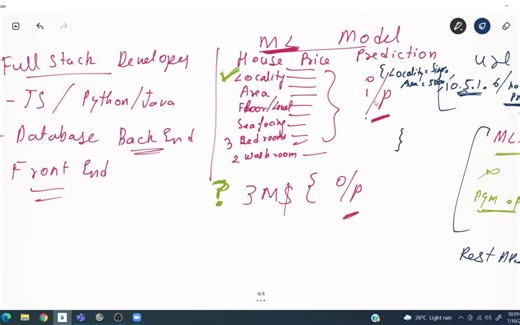 Full Stack Developer
- JS / Python / Java
- Database Back End
Front End
ML Model
House Price Prediction
Locality
Area
Floor/Level
Sea facing
3 Bedrooms
2 Washroom
? 3M$ { O/P
{ Locality =
Area =
}
url
10.5.1.6/
ML
Rest
4/4
26°C Light rain